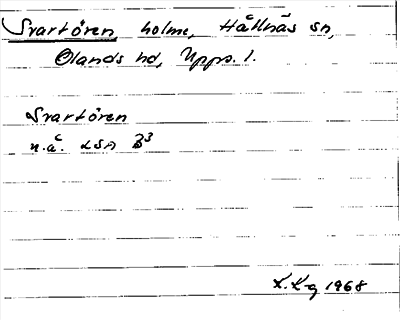 Svartören, holme, Hållnäs sn,
Olands hd, Upps. l.
Svartören
n.å. LSA B3
L.K-g 1968